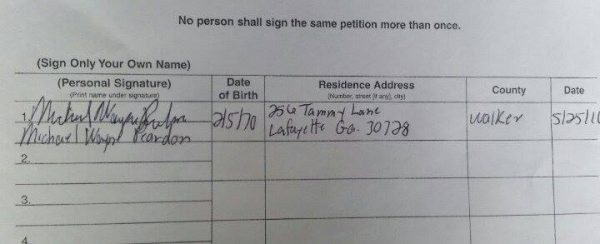 No person shall sign the same petition more than once.
(Sign Only Your Own Name)
(Personal Signature)
(Print name under signature)
Date
of Birth
Residence Address
(Number, street (if any), city)
County
Date
1. Michael Wayne
Michael Wayne Reardon
2/5/70
256 Tammy Lane
Lafayette Ga. 30728
walker
5/25/1
2.
3.
4